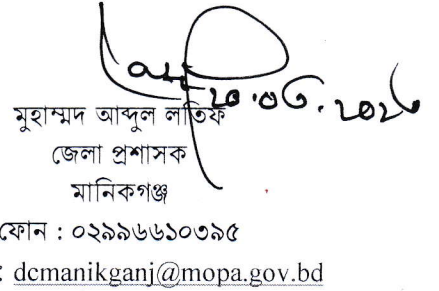 মুহাম্মদ আব্দুল লতিফ
জেলা প্রশাসক
মানিকগঞ্জ
ফোন : ০২৯৯৬৬১০৩৯৫
: dcmanikganj@mopa.gov.bd